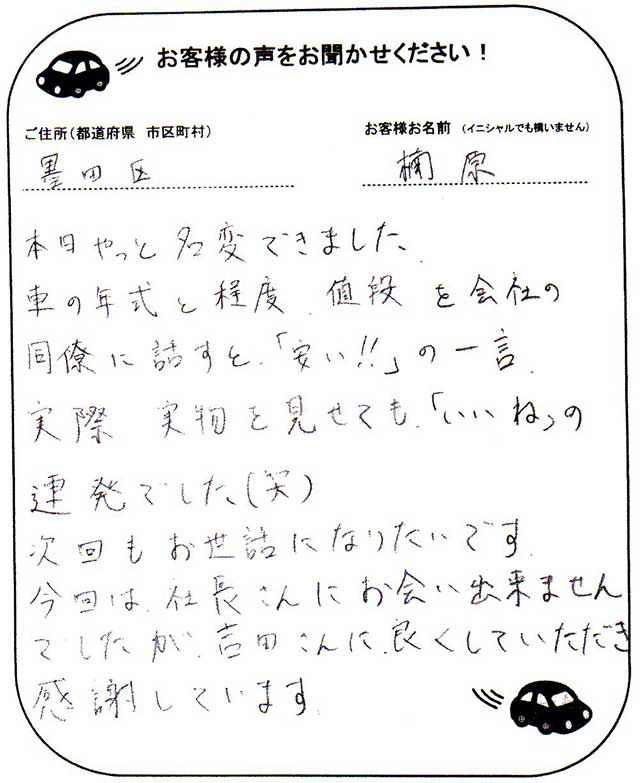 お客様の声をお聞かせください！
ご住所（都道府県 市区町村）
お客様お名前 （イニシャルでも構いません）
墨田区
楠原
本日やっと名変できました、
車の年式と程度、値段を会社の
同僚に話すと、「安い!!」の一言、
実際 実物を見せても、「いいね」の
連発でした、(笑)
次回もお世話になりたいです、
今回は、社長さんにお会い出来ません
でしたが、吉田さんに、良くしていただき
感謝しています、